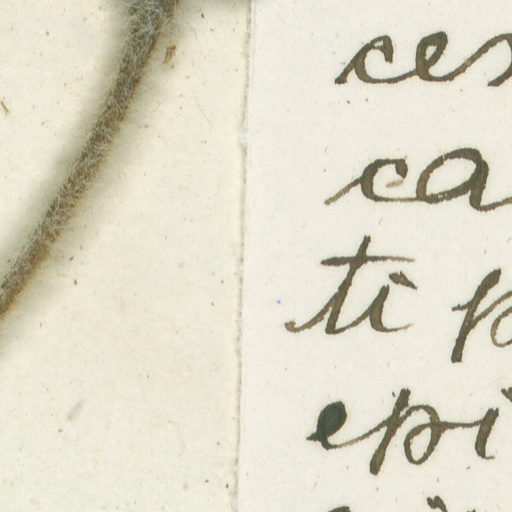 ces
ca
ti p
epi